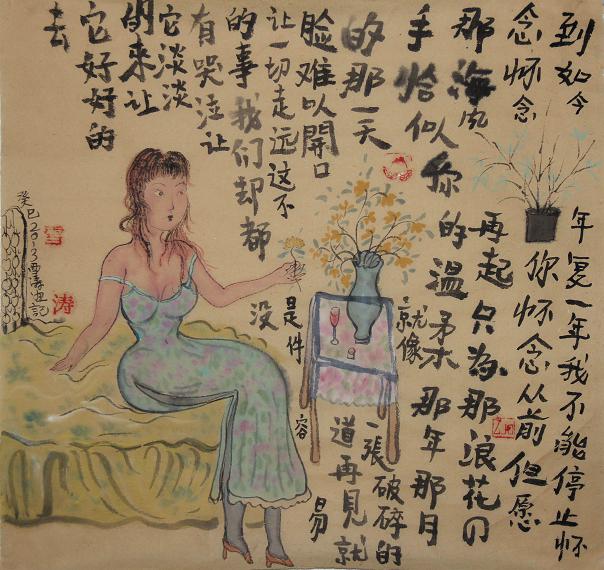 到如今年复一年我不能停止怀
念怀念你怀念从前但愿
那海风再起只为那浪花的
手恰似你的温柔那年那月
的那一天就像一張破碎的
脸难以開口道再見就
让一切走远这不是件容易
的事我们却都没
有哭泣让
它淡淡
的来让
它好好的
去
癸巳2013
記
雪
涛